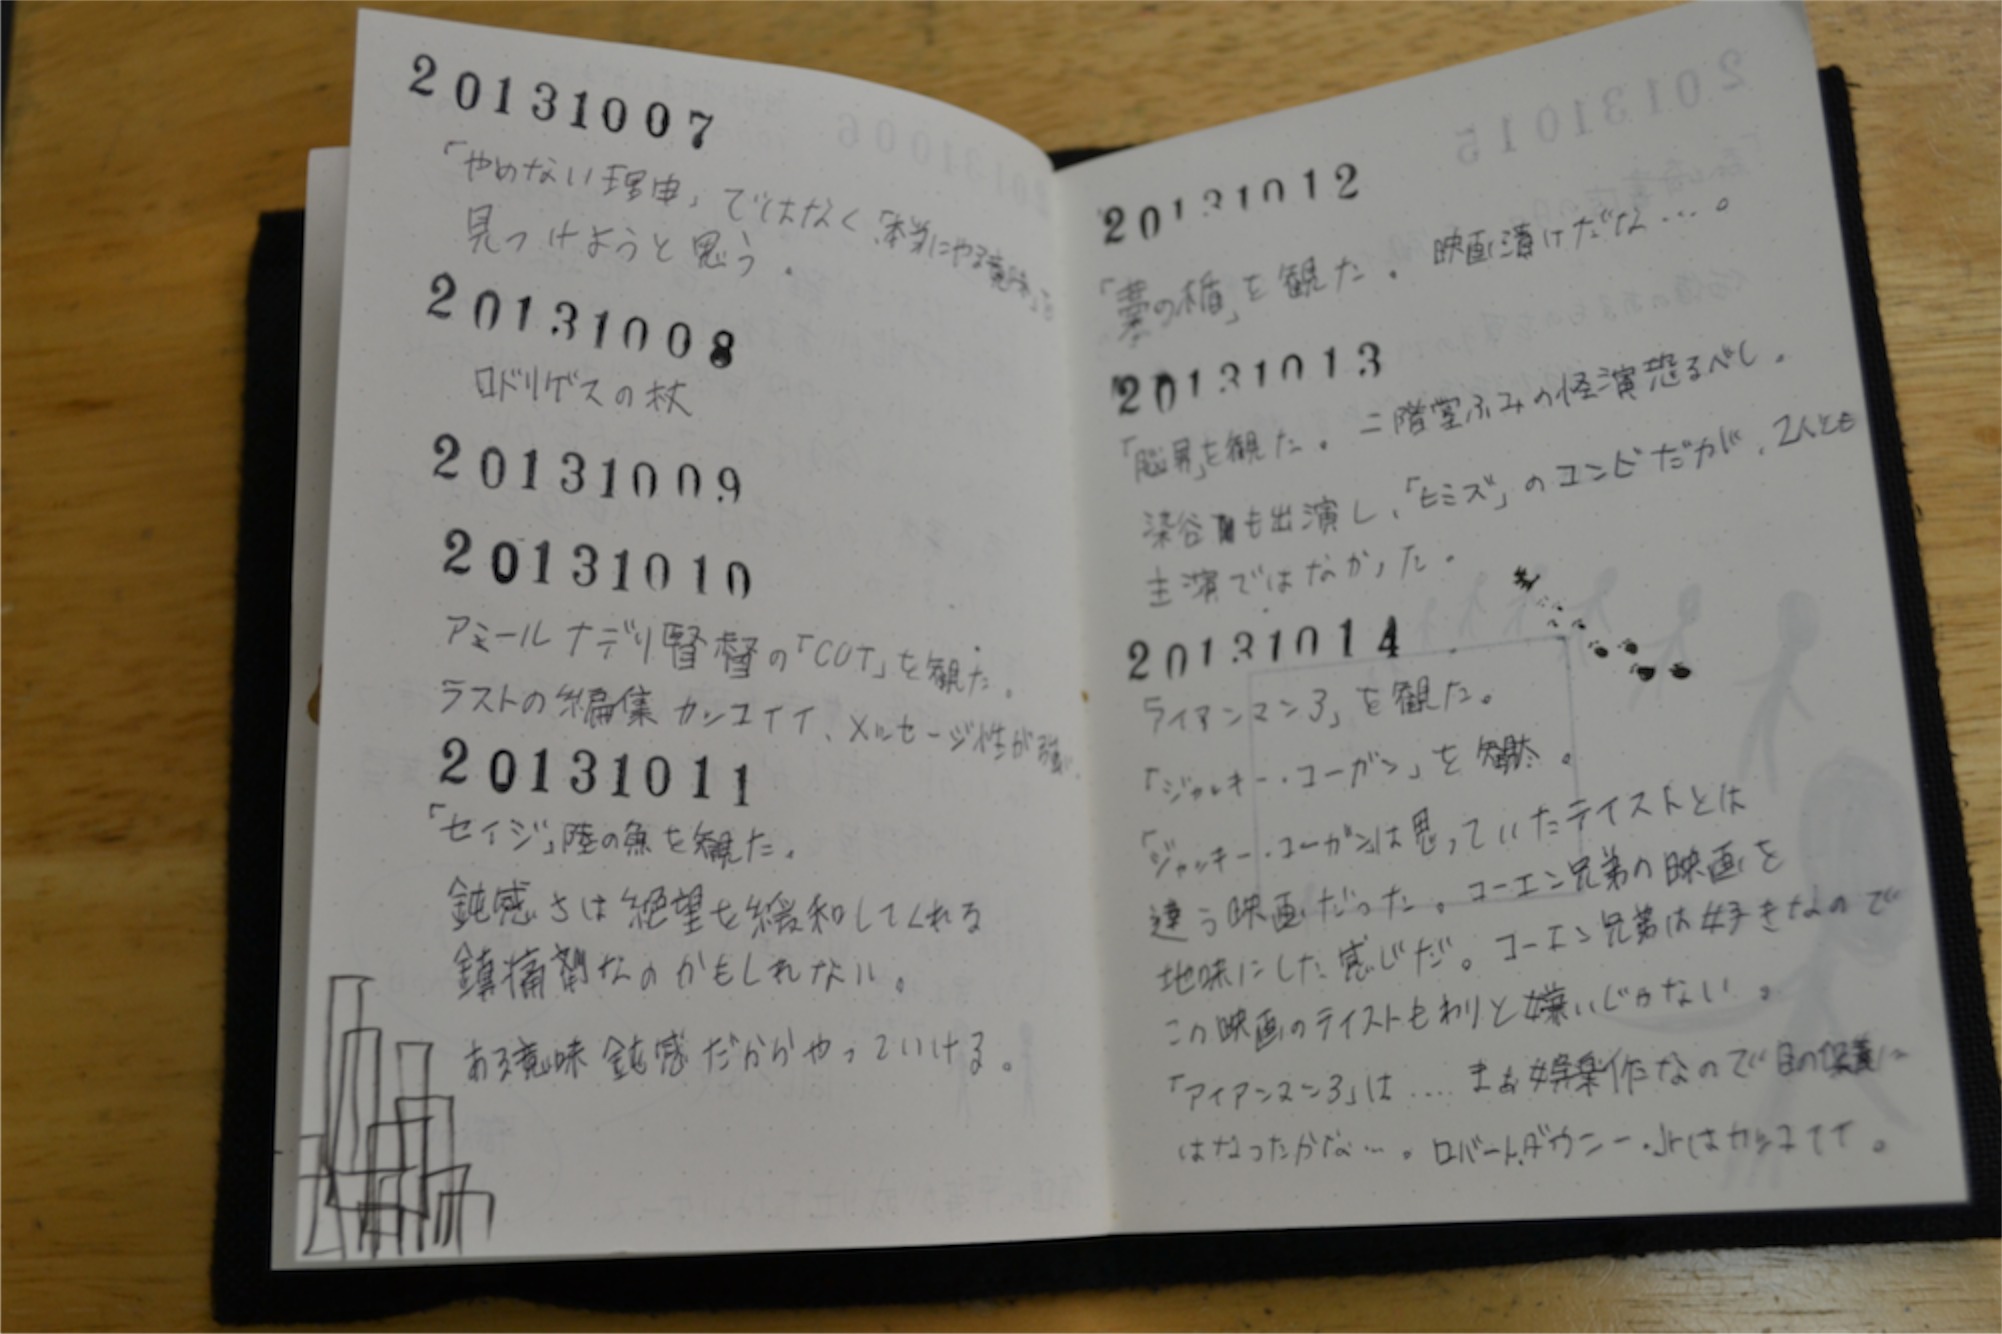 20131007
「やめない理由」ではなく、「本当にやる意味」を
見つけようと思う.
20131008
ロドリゲスの杖
20131009
20131010
アミール ナデリ監督の「CUT」を観た.
ラストの編集カッコイイ、メッセージ性が強い.
20131011
「セイジ」陸の魚を観た.
鈍感さは絶望を緩和してくれる
鎮痛剤なのかもしれない。
ある意味 鈍感だからやっていける。
20131012
「藁の楯」を観た. 映画漬けだな…。
20131013
「脳男」を観た. 二階堂ふみの怪演恐るべし.
染谷も出演し、「ヒミズ」のコンビだが、2人とも
主演ではなかった.
20131014
「アイアンマン3」を観た。
「ジャッキー・コーガン」を観た。
「ジャッキー・コーガン」は思っていたテイストとは
違う映画だった。コーエン兄弟の映画を
地味にした感じだ。コーエン兄弟は好きなので
この映画のテイストもわりと嫌いじゃない。
「アイアンマン3」は…. まぁ娯楽作なので目の保養に
はなったかな…。ロバート.ダウニー.Jrはカッコイイ。